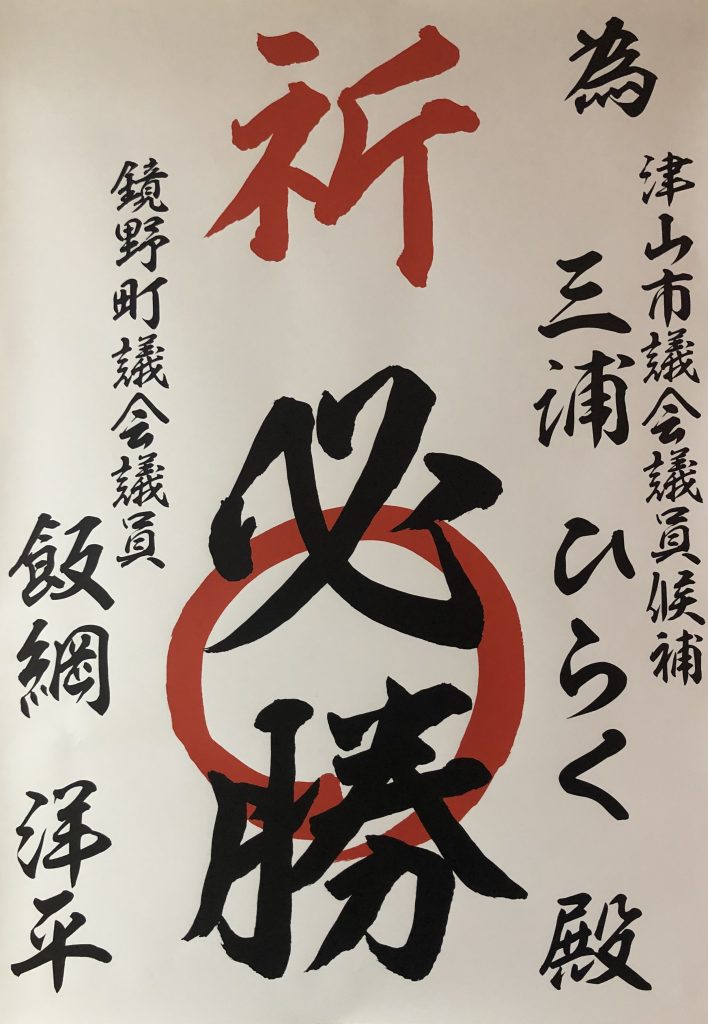 為
津山市議会議員候補
三浦 ひらく 殿
祈
必勝
鏡野町議会議員
飯綱 洋平